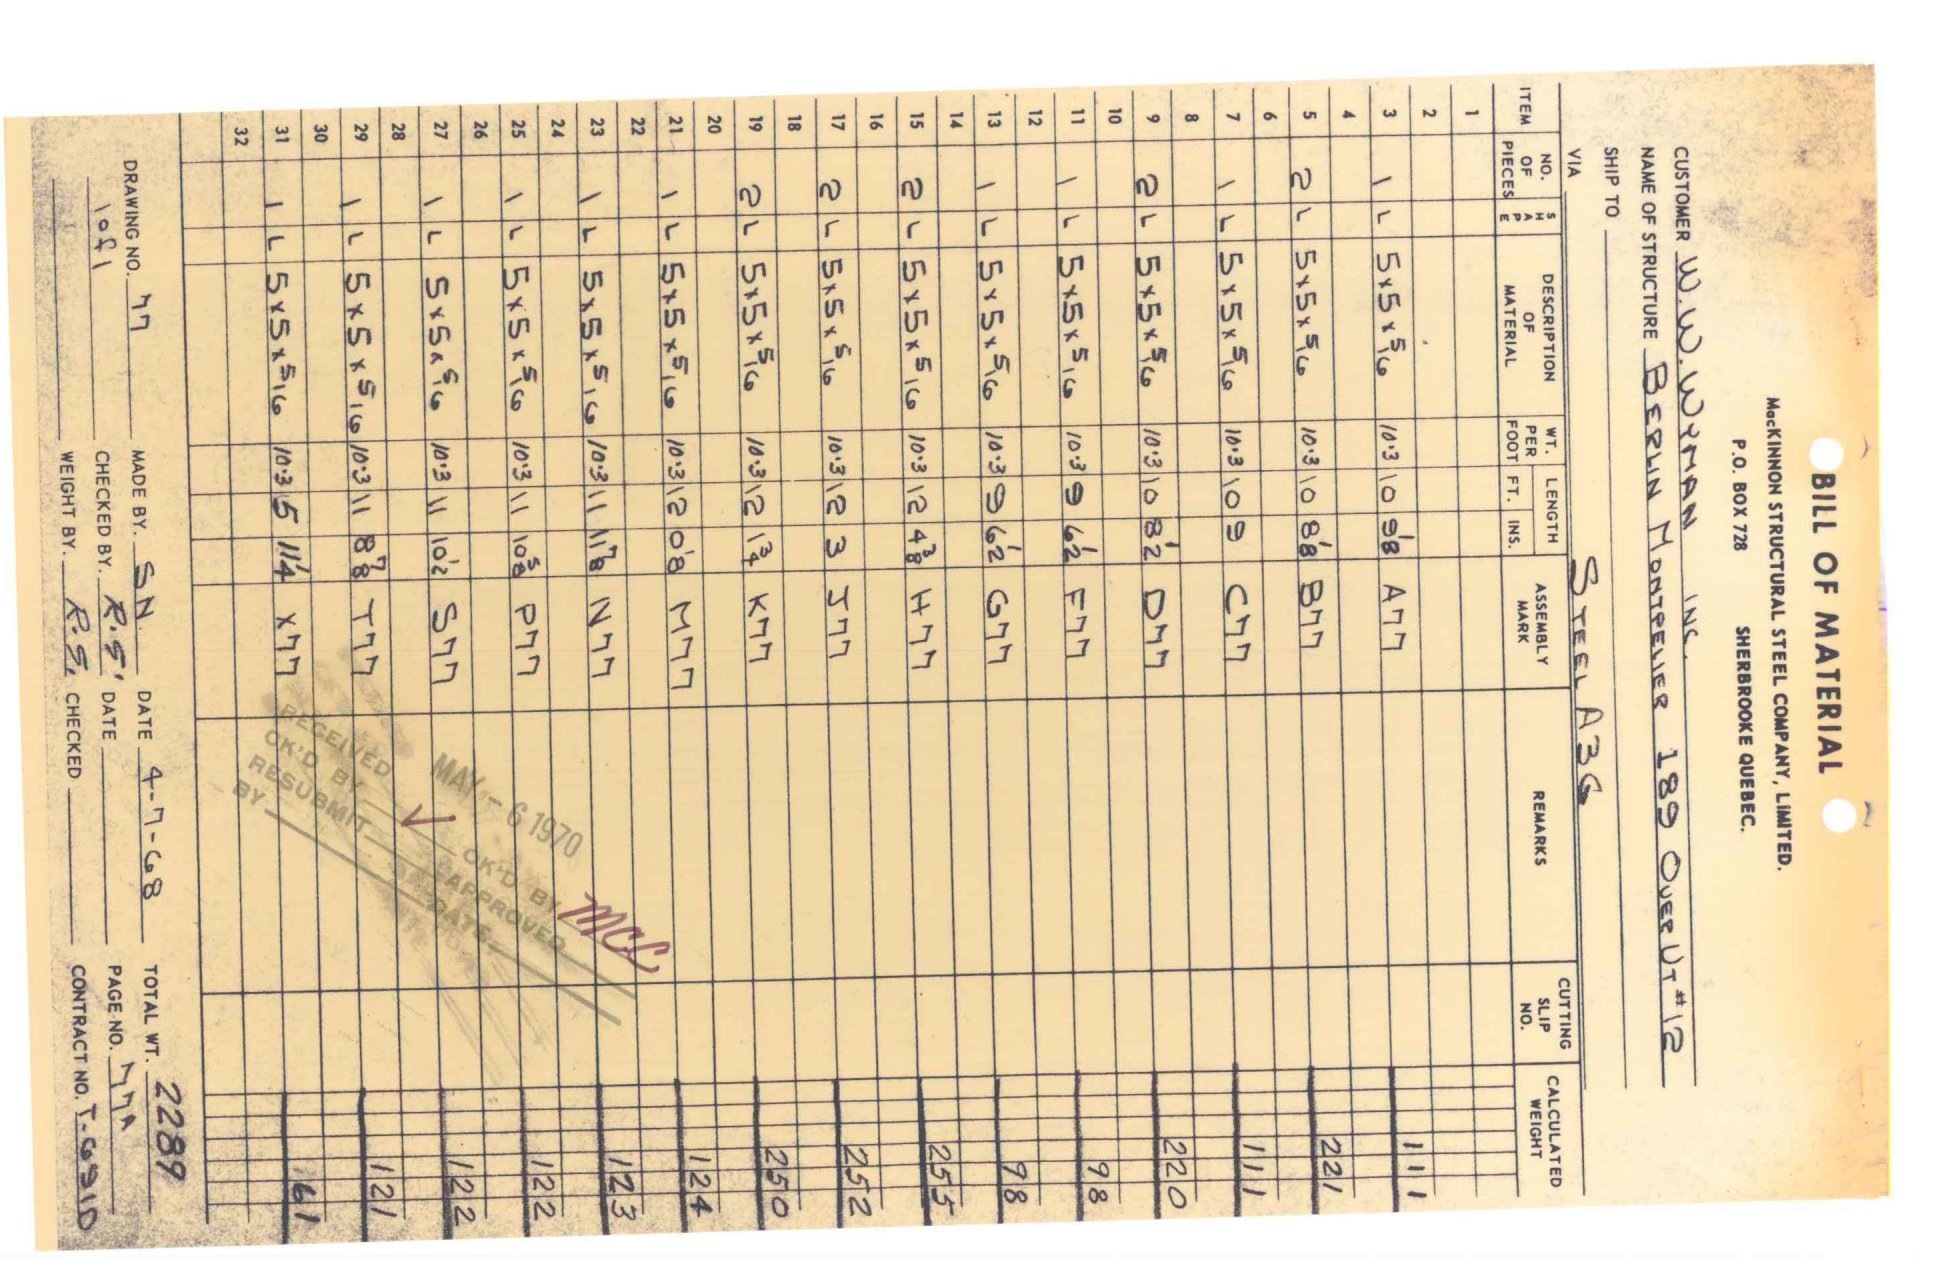 BILL OF MATERIAL
MacKINNON STRUCTURAL STEEL COMPANY, LIMITED.
P.O. BOX 728 SHERBROOKE QUEBEC.
CUSTOMER W.W. WYMAN INC.
NAME OF STRUCTURE BERLIN MONTPELIER 189 OVER UT #12
SHIP TO
VIA STEEL A36
ITEM NO. OF PIECES SHAPE DESCRIPTION OF MATERIAL WT. PER FOOT LENGTH FT. INS. ASSEMBLY MARK REMARKS CUTTING SLIP NO. CALCULATED WEIGHT
1
2
3 1 L 5x5x5/16 10.3 10 9 1/8 A77 111
4
5 2 L 5x5x5/16 10.3 10 8 1/8 B77 221
6
7 1 L 5x5x5/16 10.3 10 9 C77 111
8
9 2 L 5x5x5/16 10.3 10 8 1/2 D77 220
10
11 1 L 5x5x5/16 10.3 9 6 1/2 F77 98
12
13 1 L 5x5x5/16 10.3 9 6 1/2 G77 98
14
15 2 L 5x5x5/16 10.3 12 4 3/8 H77 255
16
17 2 L 5x5x5/16 10.3 12 3 J77 252
18
19 2 L 5x5x5/16 10.3 12 1 3/4 K77 250
20
21 1 L 5x5x5/16 10.3 12 0 1/8 M77 124
22
23 1 L 5x5x5/16 10.3 11 11 7/8 N77 123
24
25 1 L 5x5x5/16 10.3 11 10 5/8 P77 122
26
27 1 L 5x5x5/16 10.3 11 10 1/2 S77 122
28
29 1 L 5x5x5/16 10.3 11 8 7/8 T77 121
30
31 1 L 5x5x5/16 10.3 5 11 1/4 X77 61
32
MAY - 6 1970
RECEIVED
CK'D BY OK'D BY MCC
RESUBMIT APPROVED
BY DATE
DRAWING NO. 77 MADE BY. SN DATE 4-7-68 TOTAL WT. 2289
1 of 1 CHECKED BY. R.S. DATE PAGE NO. 77A
WEIGHT BY. R.S. CHECKED CONTRACT NO. T-6910